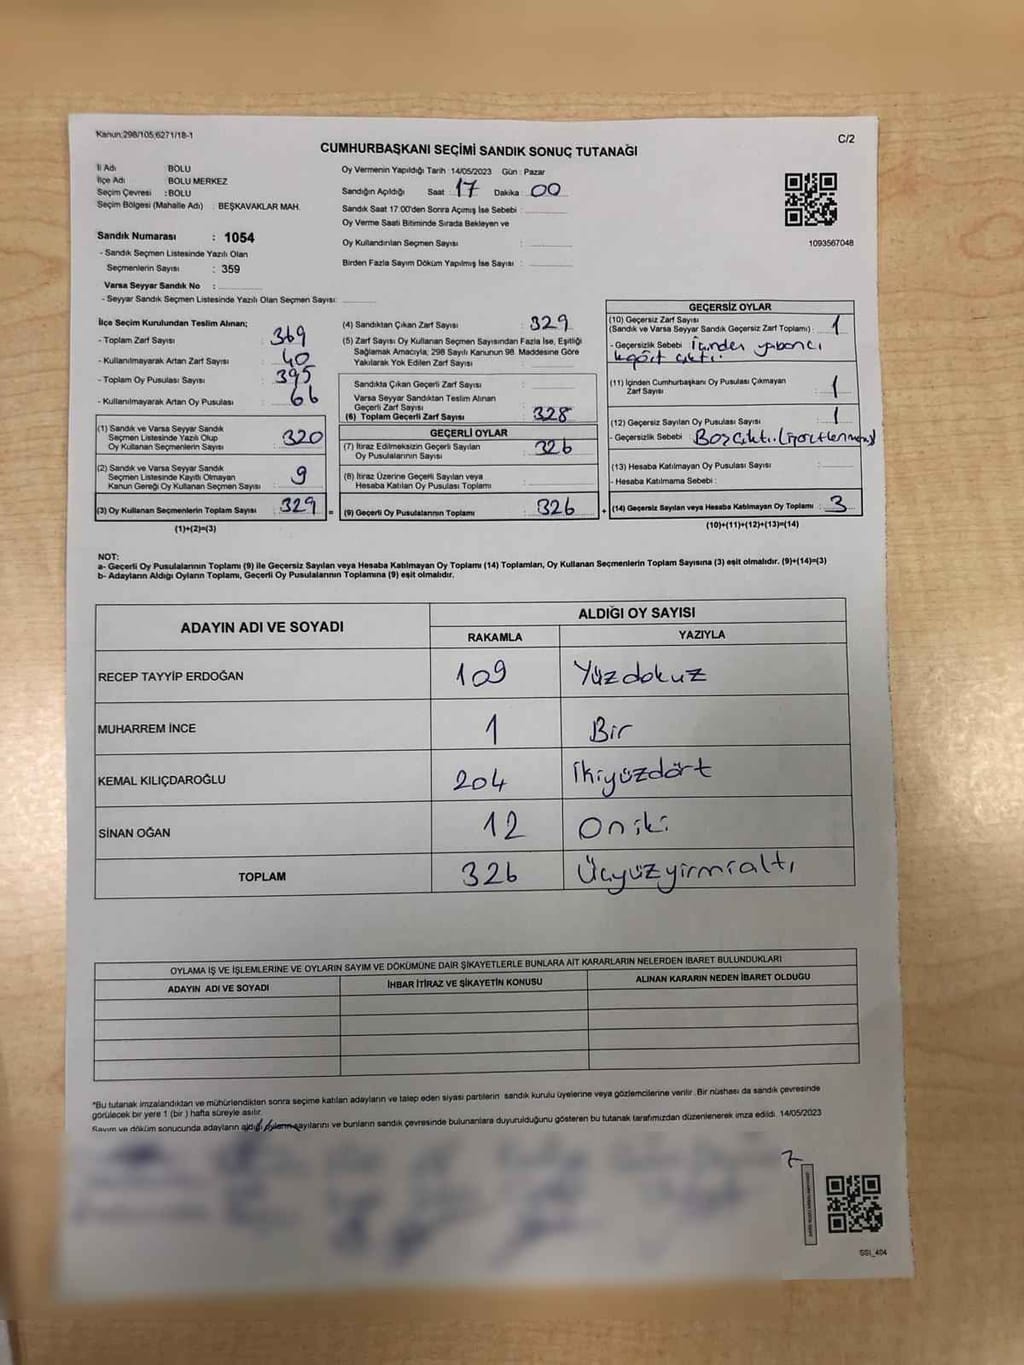 Kanun:298/105,6271/18-1
C/2
CUMHURBAŞKANI SEÇİMİ SANDIK SONUÇ TUTANAĞI
İl Adı : BOLU
İlçe Adı : BOLU MERKEZ
Seçim Çevresi : BOLU
Seçim Bölgesi (Mahalle Adı) : BEŞKAVAKLAR MAH.
Oy Vermenin Yapıldığı Tarih :14/05/2023 Gün : Pazar
Sandığın Açıldığı Saat : 17 Dakika : 00
Sandık Saat 17.00'den Sonra Açımış İse Sebebi :
Oy Verme Saati Bitiminde Sırada Bekleyen ve
Oy Kullandırılan Seçmen Sayısı :
Birden Fazla Sayım Döküm Yapılmış İse Sayısı :
1093567048
Sandık Numarası : 1054
- Sandık Seçmen Listesinde Yazılı Olan
Seçmenlerin Sayısı : 359
Varsa Seyyar Sandık No :
- Seyyar Sandık Seçmen Listesinde Yazılı Olan Seçmen Sayısı:
İlçe Seçim Kurulundan Teslim Alınan;
- Toplam Zarf Sayısı : 369
- Kullanılmayarak Artan Zarf Sayısı : 40
- Toplam Oy Pusulası Sayısı : 395
- Kullanılmayarak Artan Oy Pusulası : 66
(1) Sandık ve Varsa Seyyar Sandık
Seçmen Listesinde Yazılı Olup
Oy Kullanan Seçmenlerin Sayısı : 320
(2) Sandık ve Varsa Seyyar Sandık
Seçmen Listesinde Kayıtlı Olmayan
Kanun Gereği Oy Kullanan Seçmen Sayısı : 9
(3) Oy Kullanan Seçmenlerin Toplam Sayısı : 329 =
(1)+(2)=(3)
(4) Sandıktan Çıkan Zarf Sayısı : 329
(5) Zarf Sayısı Oy Kullanan Seçmen Sayısından Fazla İse, Eşitliği
Sağlamak Amacıyla; 298 Sayılı Kanunun 98. Maddesine Göre
Yakılarak Yok Edilen Zarf Sayısı :
Sandıkta Çıkan Geçerli Zarf Sayısı :
Varsa Seyyar Sandıktan Teslim Alınan
Geçerli Zarf Sayısı :
(6) Toplam Geçerli Zarf Sayısı : 328
GEÇERLİ OYLAR
(7) İtiraz Edilmeksizin Geçerli Sayılan
Oy Pusulalarının Sayısı : 326
(8) İtiraz Üzerine Geçerli Sayılan veya
Hesaba Katılan Oy Pusulası Toplamı :
(9) Geçerli Oy Pusulalarının Toplamı : 326 +
GEÇERSİZ OYLAR
(10) Geçersiz Zarf Sayısı
(Sandık ve Varsa Seyyar Sandık Geçersiz Zarf Toplamı) : 1
- Geçersizlik Sebebi : İçinden yabancı
kağıt çıktı.
(11) İçinden Cumhurbaşkanı Oy Pusulası Çıkmayan
Zarf Sayısı : 1
(12) Geçersiz Sayılan Oy Pusulası Sayısı : 1
- Geçersizlik Sebebi : Boş çıktı.
(13) Hesaba Katılmayan Oy Pusulası Sayısı :
- Hesaba Katılmama Sebebi :
(14) Geçersiz Sayılan veya Hesaba Katılmayan Oy Toplamı : 3
(10)+(11)+(12)+(13)=(14)
NOT:
a- Geçerli Oy Pusulalarının Toplamı (9) ile Geçersiz Sayılan veya Hesaba Katılmayan Oy Toplamı (14) Toplamları, Oy Kullanan Seçmenlerin Toplam Sayısına (3) eşit olmalıdır. (9)+(14)=(3)
b- Adayların Aldığı Oyların Toplamı, Geçerli Oy Pusulalarının Toplamına (9) eşit olmalıdır.
ADAYIN ADI VE SOYADI
ALDIĞI OY SAYISI
RAKAMLA YAZIYLA
RECEP TAYYİP ERDOĞAN 109 Yüzdokuz
MUHARREM İNCE 1 Bir
KEMAL KILIÇDAROĞLU 204 İkiyüzdört
SİNAN OĞAN 12 Oniki
TOPLAM 326 Üçyüzyirmialtı
OYLAMA İŞ VE İŞLEMLERİNE VE OYLARIN SAYIM VE DÖKÜMÜNE DAİR ŞİKAYETLERLE BUNLARA AİT KARARLARIN NELERDEN İBARET BULUNDUKLARI
ADAYIN ADI VE SOYADI İHBAR İTİRAZ VE ŞİKAYETİN KONUSU ALINAN KARARIN NEDEN İBARET OLDUĞU
*Bu tutanak imzalandıktan ve mühürlendikten sonra seçime katılan adayların ve talep eden siyasi partilerin sandık kurulu üyelerine veya gözlemcilerine verilir. Bir nüshası da sandık çevresinde
görülecek bir yere 1 (bir ) hafta süreyle asılır.
Sayım ve döküm sonucunda adayların aldığı oyların sayılarını ve bunların sandık çevresinde bulunanlara duyurulduğunu gösteren bu tutanak tarafımızdan düzenlenerek imza edildi. 14/05/2023
7
SSI_404